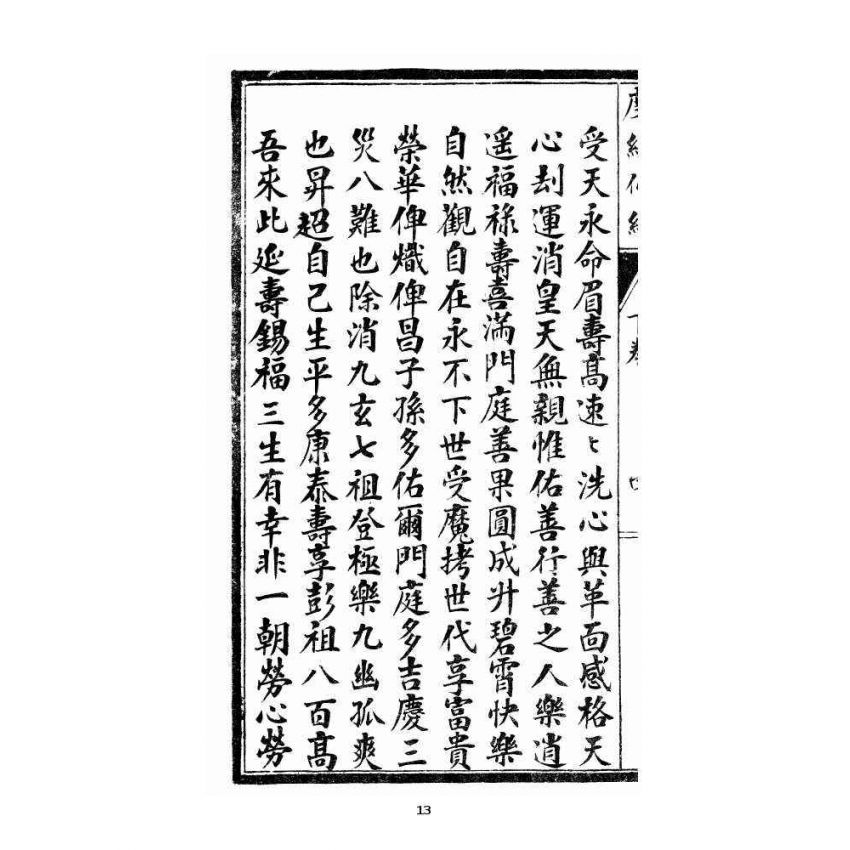 受天永命眉壽高速〻洗心與革面感格天
心刦運消皇天無親惟佑善行善之人樂逍
遥福祿壽喜滿門庭善果圓成升碧霄快樂
自然觀自在永不下世受魔拷世代享富貴
榮華俾熾俾昌子孫多佑爾門庭多吉慶三
災八難也除消九玄七祖登極樂九幽孤爽
也昇超自己生平多康泰壽享彭祖八百高
吾來此延壽錫福三生有幸非一朝勞心勞
13